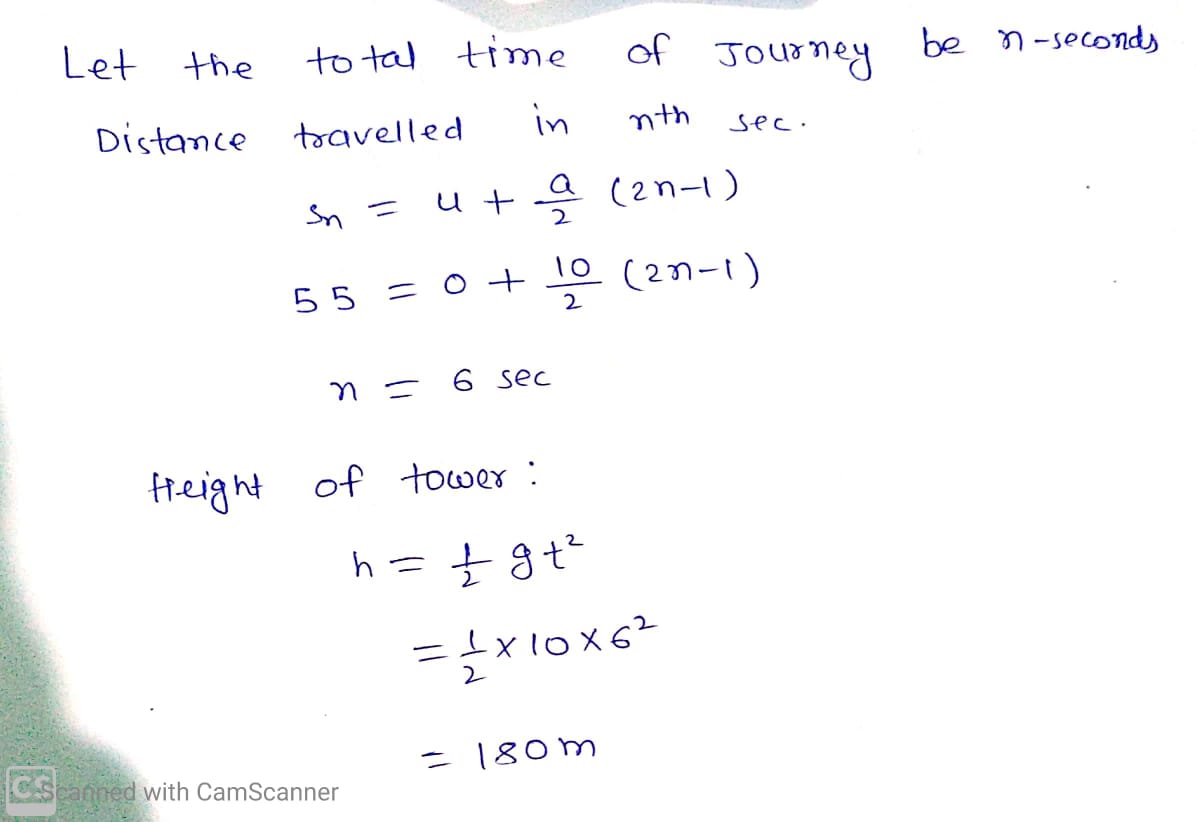 Let the total time of Journey be n-seconds
Distance travelled in nth sec.
Sn = u + a/2 (2n-1)
55 = 0 + 10/2 (2n-1)
n = 6 sec
Height of tower :
h = 1/2 gt²
= 1/2 × 10 × 6²
= 180m
CS Scanned with CamScanner